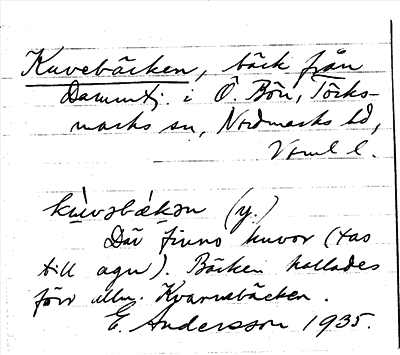 Kuvebäcken, bäck från
Dammtj. i Ö. Bön, Töcks-
marks sn, Nordmarks hd,
Vrml. l.
kùvəbǽkən (y.)
Där finns kuvor (tas
till agn). Bäcken kallades
förr allm. Kvarnebäcken.
E. Andersson 1935.